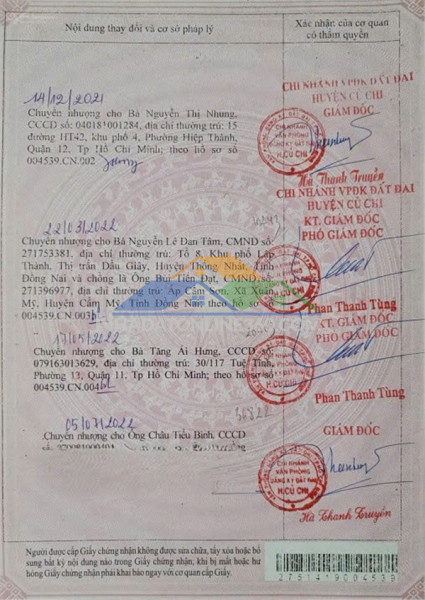 Nội dung thay đổi và cơ sở pháp lý
Xác nhận của cơ quan
có thẩm quyền
14/12/2021
Chuyển nhượng cho Bà Nguyễn Thị Nhung,
CCCD số: 040181001284, địa chỉ thường trú: 15
đường HT42, khu phố 4, Phường Hiệp Thành,
Quận 12, Tp Hồ Chí Minh; theo hồ sơ số
004539.CN.002
CHI NHÁNH VPĐK ĐẤT ĐAI
HUYỆN CỦ CHI
GIÁM ĐỐC
CHI NHÁNH
VĂN PHÒNG
ĐĂNG KÝ ĐẤT ĐAI
H.CỦ CHI
Hà Thanh Truyền
22/03/2022
Chuyển nhượng cho Bà Nguyễn Lê Đan Tâm, CMND số:
271753381, địa chỉ thường trú: Tổ 8, Khu phố Lập
Thành, Thị trấn Dầu Giây, Huyện Thống Nhất, Tỉnh
Đồng Nai và chồng là Ông Bùi Tiến Đạt, CMND số:
271396977, địa chỉ thường trú: Ấp Cẩm Sơn, Xã Xuân
Mỹ, Huyện Cẩm Mỹ, Tỉnh Đồng Nai; theo hồ sơ số
004539.CN.003
CHI NHÁNH VPĐK ĐẤT ĐAI
HUYỆN CỦ CHI
KT. GIÁM ĐỐC
PHÓ GIÁM ĐỐC
Phan Thanh Tùng
17/05/2022
Chuyển nhượng cho Bà Tăng Ái Hưng, CCCD số:
079163013629, địa chỉ thường trú: 30/117 Tuệ Tĩnh,
Phường 13, Quận 11, Tp Hồ Chí Minh; theo hồ sơ số
004539.CN.004
KT. GIÁM ĐỐC
PHÓ GIÁM ĐỐC
H.CỦ CHI
Phan Thanh Tùng
05/07/2022
Chuyển nhượng cho Ông Châu Tiểu Bình, CCCD
GIÁM ĐỐC
CHI NHÁNH
VĂN PHÒNG
ĐĂNG KÝ ĐẤT ĐAI
H.CỦ CHI
Hà Thanh Truyền
Người được cấp Giấy chứng nhận không được sửa chữa, tẩy xóa hoặc bổ
sung bất kỳ nội dung nào trong Giấy chứng nhận; khi bị mất hoặc hư
hỏng Giấy chứng nhận phải khai báo ngay với cơ quan cấp Giấy.
2751419004539